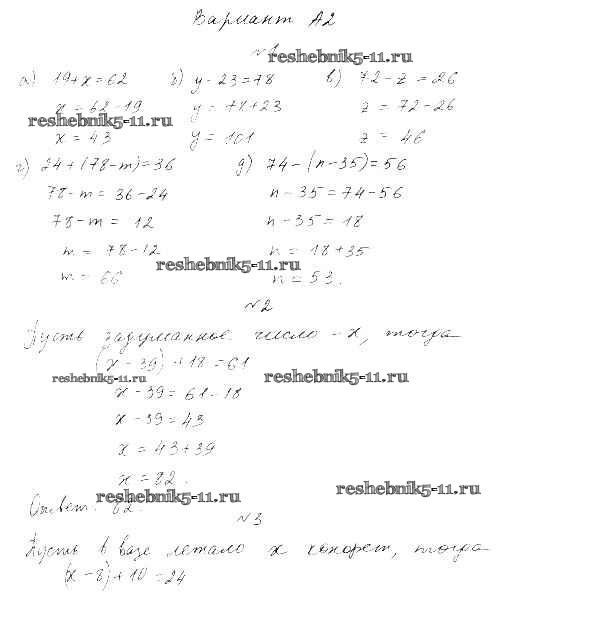 Вариант А2
№1
reshebnik5-11.ru
а) 19+x=62 б) y-23=78 в) 72-z=26
x=62-19 y=78+23 z=72-26
reshebnik5-11.ru
x=43 y=101 z=46
г) 24+(78-m)=36 д) 74-(n-35)=56
78-m=36-24 n-35=74-56
78-m=12 n-35=18
m=78-12 n=18+35
reshebnik5-11.ru
m=66 n=53.
№2
Пусть задуманное число -x, тогда
(x-39)+18=61
reshebnik5-11.ru reshebnik5-11.ru
x-39=61-18
x-39=43
x=43+39
x=82.
reshebnik5-11.ru reshebnik5-11.ru
Ответ: 82.
№3
Пусть в вазе лежало x конфет, тогда
(x-8)+10=24